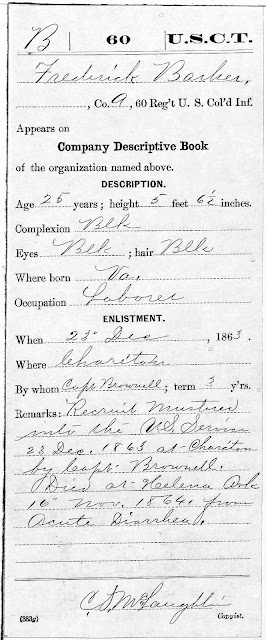 B | 60 | U.S.C.T.
Frederick Barker,
, Co. A, 60 Reg't U. S. Col'd Inf.
Appears on
Company Descriptive Book
of the organization named above.
DESCRIPTION.
Age 25 years; height 5 feet 6½ inches.
Complexion Blk
Eyes Blk ; hair Blk
Where born Va,
Occupation Laborer
ENLISTMENT.
When 23" Dec , 1863.
Where Chariton
By whom Capt Brownell; term 3 y'rs.
Remarks: Recruit Mustered
into the U.S. Service
23 Dec. 1863 at Chariton
by Capt. Brownell.
Died at Helena Ark
16" Nov. 1864. from
Acute Diarrhea.
C. F. McLaughlin
(383g) Copyist.